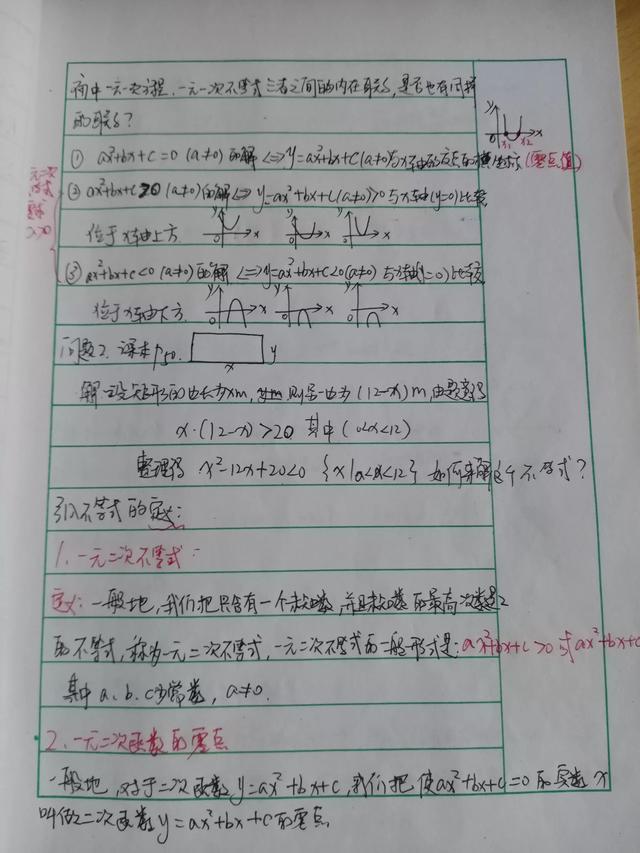 高中一元一次方程、一元一次不等式三者之间的内在联系,是否也有同样
的联系?
① ax²+bx+c=0 (a≠0) 的解 <=> y=ax²+bx+c (a≠0)与x轴的交点的横坐标 (零点值)
② ax²+bx+c>0 (a≠0)的解<=> y=ax²+bx+c(a≠0)>0 与x轴(y=0)比较
位于x轴上方
③ ax²+bx+c<0 (a≠0)的解 <=> y=ax²+bx+c<0(a≠0) 与x轴(y=0)比较
位于x轴下方
问题2. 课本P50.
x
y
解:设矩形的一边长为xm, 则另一边为(12-x)m,由题意得
x·(12-x)>20 其中(0<x<12)
整理得 x²-12x+20<0 {x|0<x<12} 如何求解这个不等式?
引入不等式的定义:
1. 一元二次不等式:
定义: 一般地,我们把只含有一个未知数,并且未知数的最高次数是2
的不等式,称为一元二次不等式,一元二次不等式的一般形式是: ax²+bx+c>0 或ax²+bx+c
其中a、b、c为常数, a≠0.
2、一元二次函数的零点
一般地,对于二次函数y=ax²+bx+c,我们把使ax²+bx+c=0的实数x
叫做二次函数y=ax²+bx+c的零点